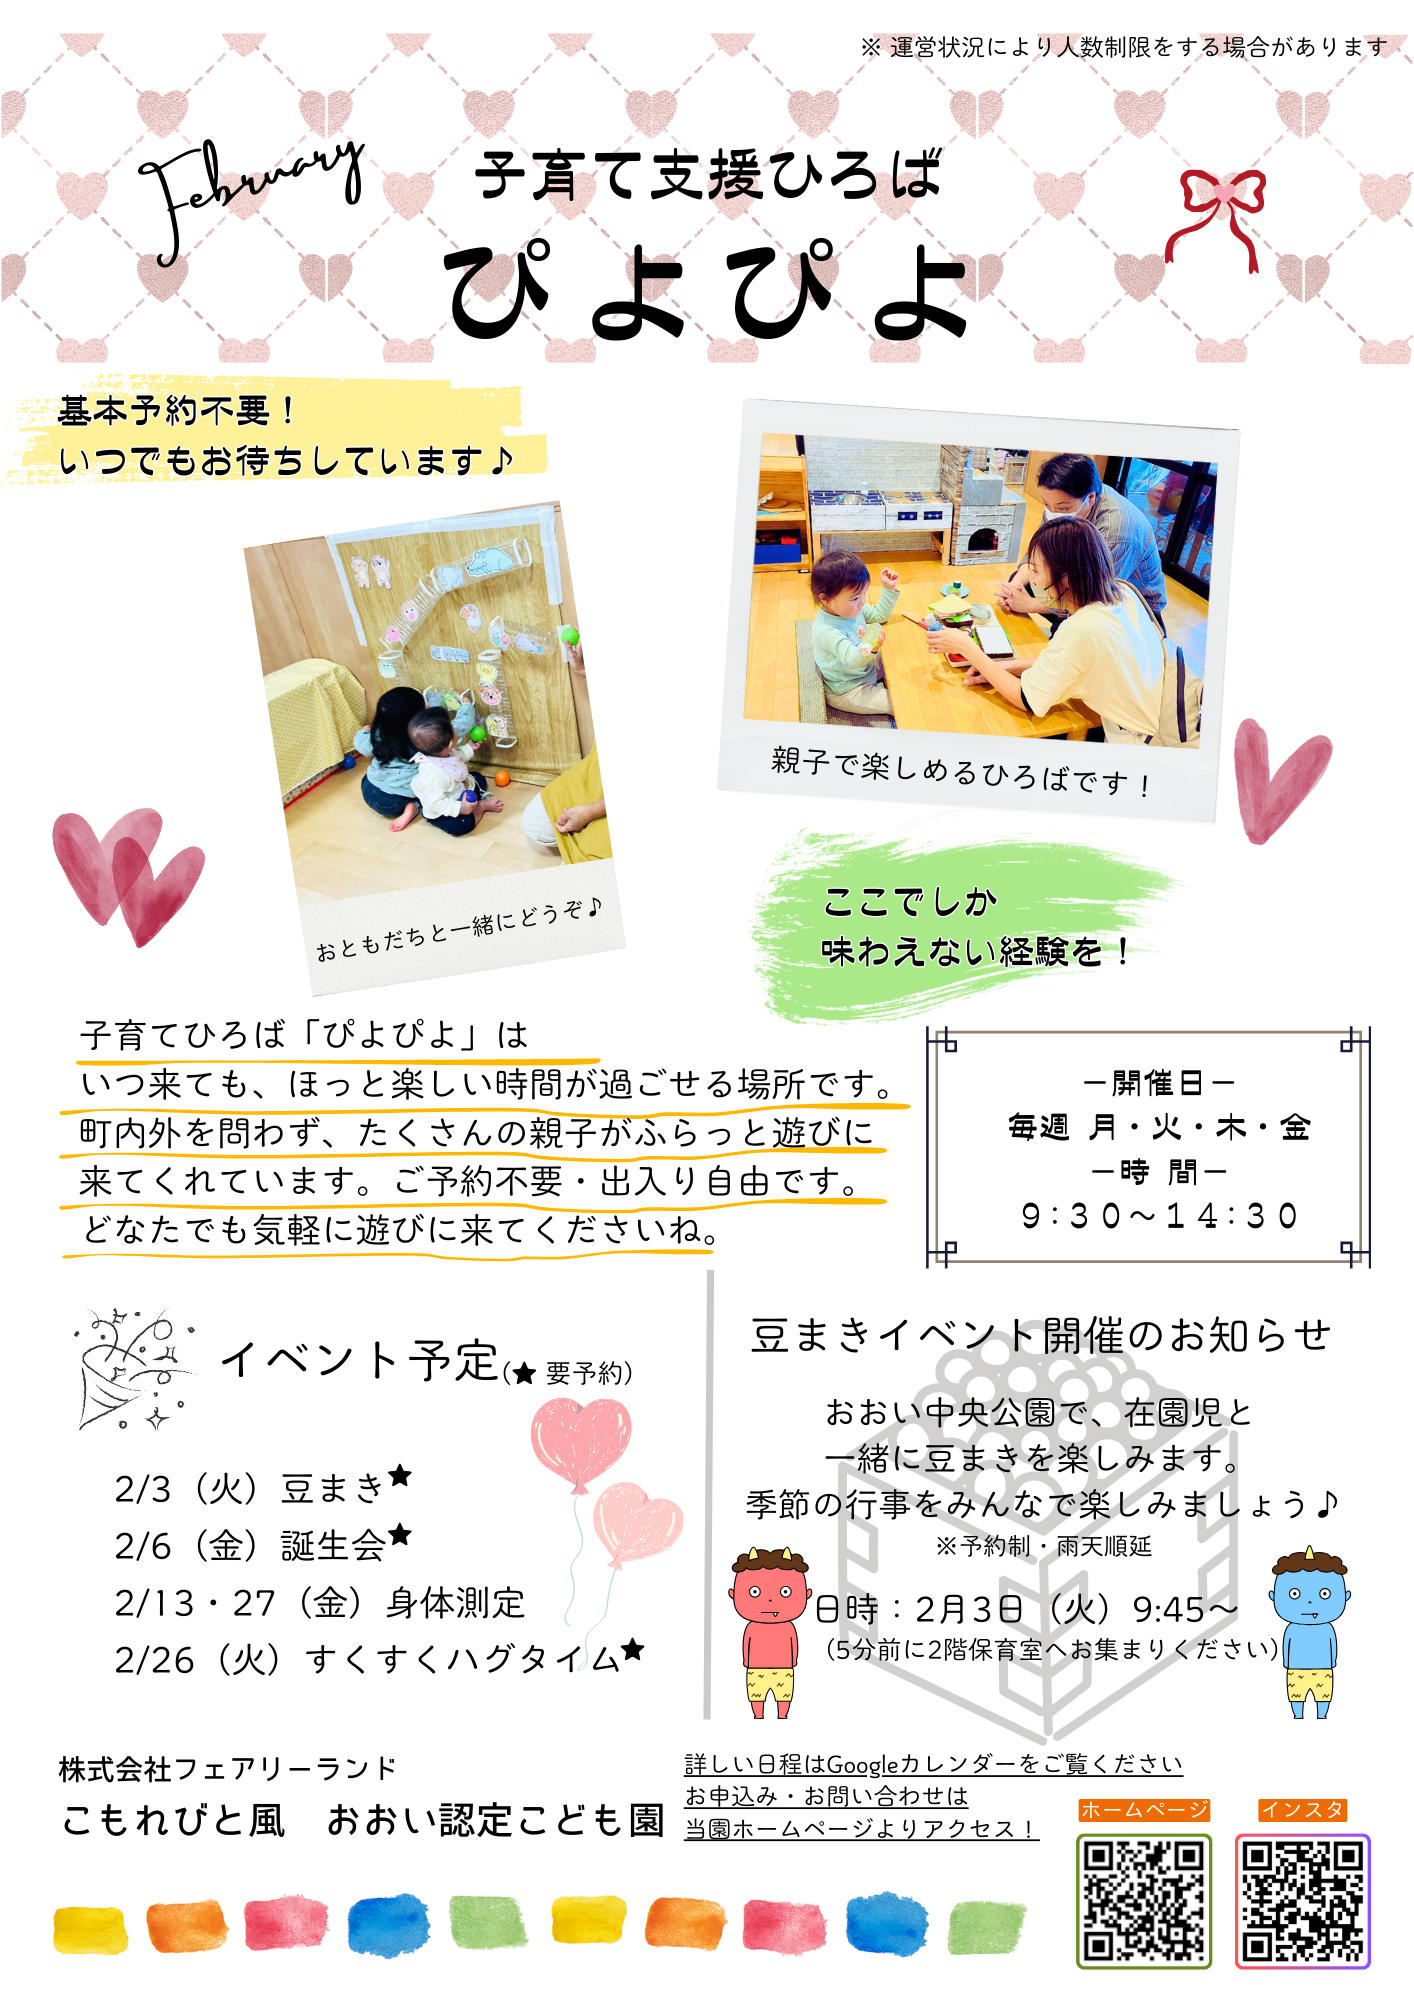 ※ 運営状況により人数制限をする場合があります
February
子育て支援ひろば
ぴよぴよ
基本予約不要！
いつでもお待ちしています♪
親子で楽しめるひろばです！
おともだちと一緒にどうぞ♪
ここでしか
味わえない経験を！
子育てひろば「ぴよぴよ」は
いつ来ても、ほっと楽しい時間が過ごせる場所です。
町内外を問わず、たくさんの親子がふらっと遊びに
来てくれています。ご予約不要・出入り自由です。
どなたでも気軽に遊びに来てくださいね。
－開催日－
毎週 月・火・木・金
－時 間－
9:30～14:30
イベント予定(★ 要予約)
2/3（火）豆まき★
2/6（金）誕生会★
2/13・27（金）身体測定
2/26（火）すくすくハグタイム★
豆まきイベント開催のお知らせ
おおい中央公園で、在園児と
一緒に豆まきを楽しみます。
季節の行事をみんなで楽しみましょう♪
※予約制・雨天順延
日時：2月3日（火）9:45～
（5分前に2階保育室へお集まりください）
株式会社フェアリーランド
こもれびと風　おおい認定こども園
詳しい日程はGoogleカレンダーをご覧ください
お申込み・お問い合わせは
当園ホームページよりアクセス！
ホームページ
インスタ